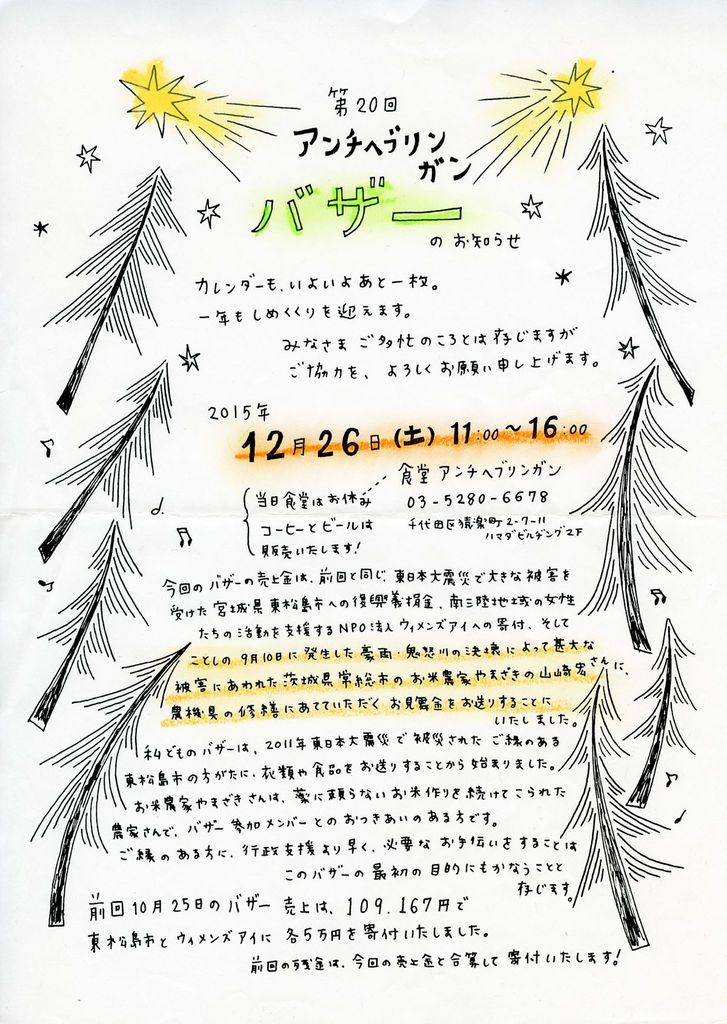 第20回
アンチヘブリン
ガン
バザー
のお知らせ
カレンダーも、いよいよあと一枚。
一年もしめくくりを迎えます。
みなさま ご多忙のころとは存じますが
ご協力を、よろしくお願い申し上げます。
2015年
12月26日(土) 11:00〜16:00
食堂 アンチヘブリンガン
03-5280-6678
千代田区猿楽町2-7-11
ハマダビルヂング2F
当日食堂はお休み
コーヒーとビールは
販売いたします!
今回のバザーの売上金は、前回と同じ、東日本大震災で大きな被害を
受けた宮城県東松島市への復興義捐金、南三陸地域の女性
たちの活動を支援するNPO法人ウィメンズアイへの寄付、そして
ことしの9月10日に発生した豪雨・鬼怒川の決壊によって甚大な
被害にあわれた茨城県常総市のお米農家やまざきの山崎宏さんに、
農機具の修繕にあてていただくお見舞金をお送りすることに
いたしました。
私どものバザーは、2011年東日本大震災で被災されたご縁のある
東松島市の方がたに、衣類や食品をお送りすることから始まりました。
お米農家やまざきさんは、薬に頼らないお米作りを続けてこられた
農家さんで、バザー参加メンバーとのおつきあいのある方です。
ご縁のある方に、行政支援より早く、必要なお手伝いをすることは
このバザーの最初の目的にもかなうことと
存じます。
前回10月25日のバザー売上は、109.167円で
東松島市とウィメンズアイに各5万円を寄付いたしました。
前回の残金は、今回の売上金と合算して寄付いたします!